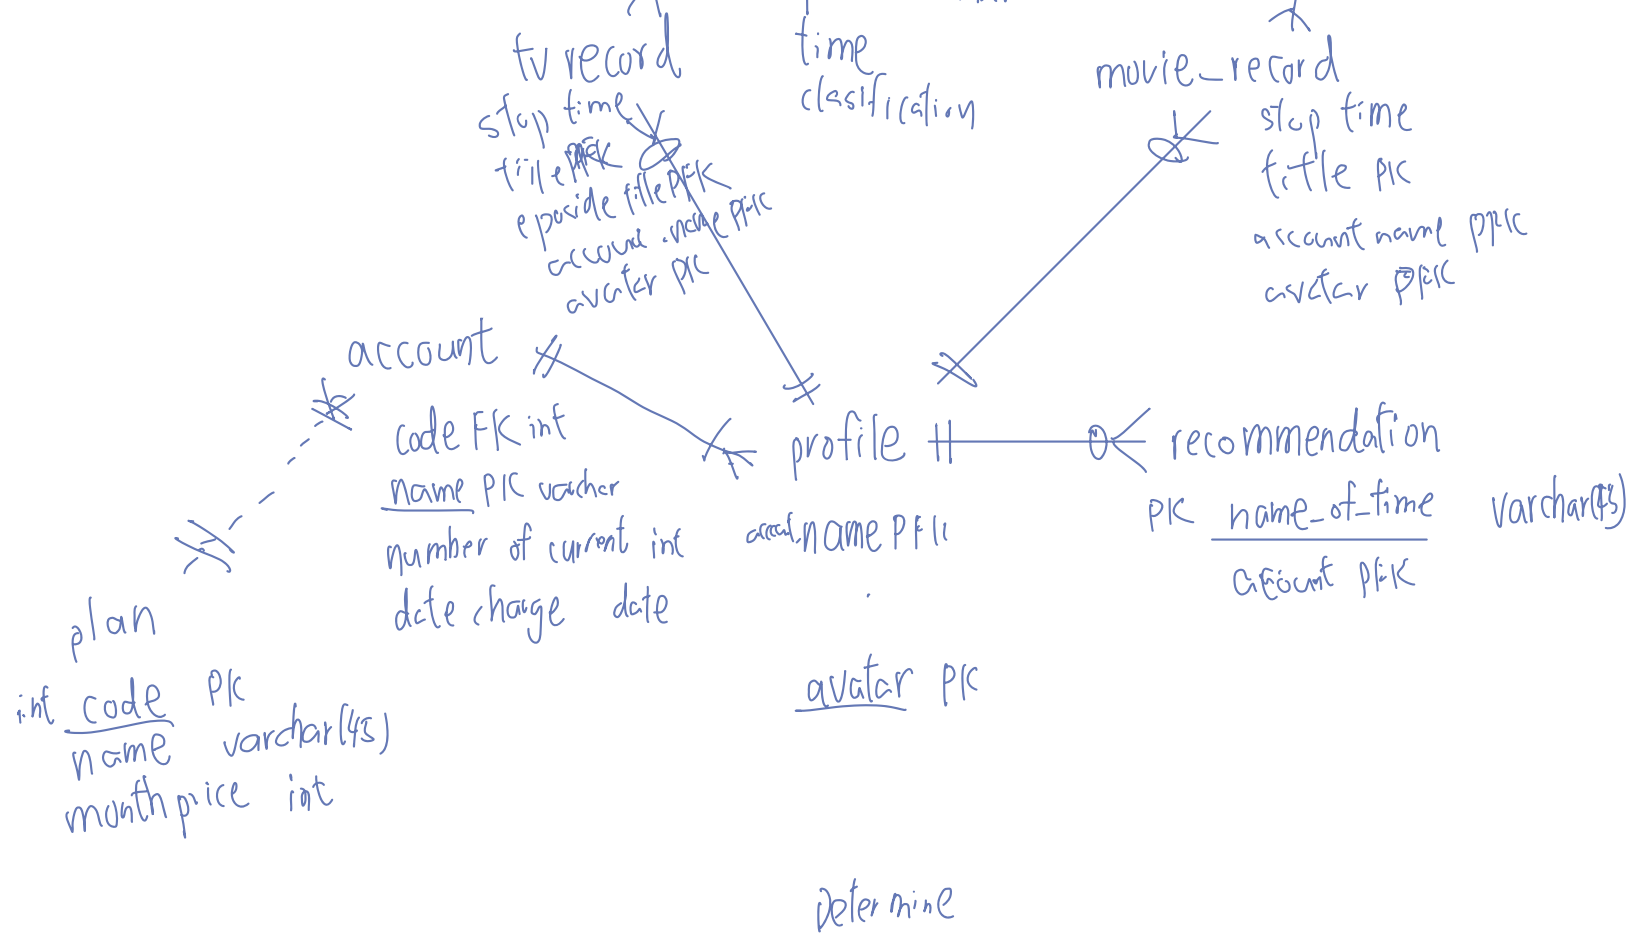 tv record
stop time
title PFK
eposide title PFK
account name PFK
avatar PK
time
clasification
movie_record
stop time
title PK
account name PFK
avatar PFK
account
code FK int
name PK varcher
number of current int
date charge date
profile
account name PFK
avatar PK
recommendation
PK name_of_time varchar(45)
account PFK
plan
int code PK
name varchar(45)
month price int
Determine